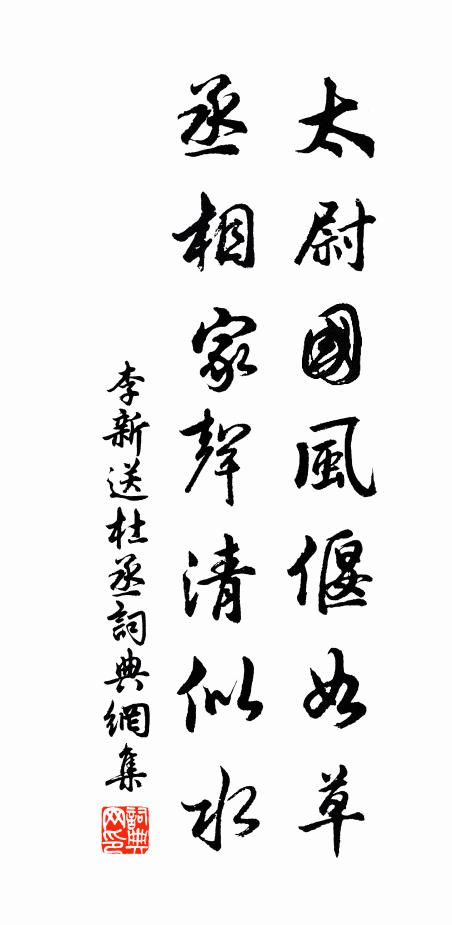 太尉國風偃如草
丞相家聲清似水
李新送杜丞詞典網集
詞典网印